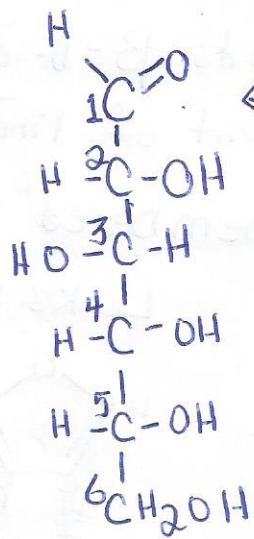 H
O
1C
H -2C-OH
HO -3C-H
H -4C-OH
H -5C-OH
6CH2OH